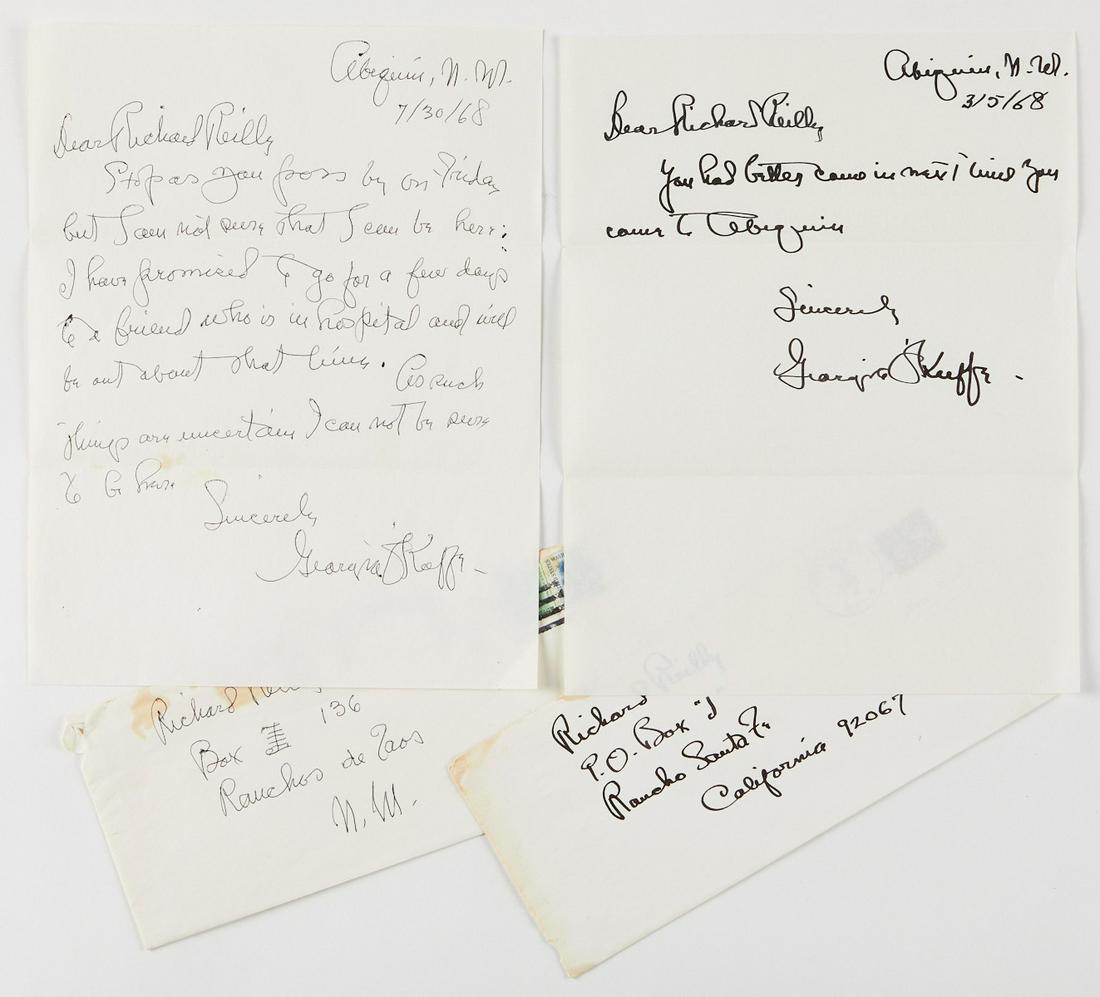 Abiquiu, N.M.
7/30/68
Dear Richard Reilly
Stop as you pass by on Friday
but I am not sure that I can be here:
I have promised to go for a few days
to a friend who is in hospital and will
be out about that time. As such
things are uncertain I can not be sure
to be here
Sincerely
Georgia O'Keeffe –
Abiquiu, N.M.
3/5/68
Dear Richard Reilly
You had better come in next time you
come to Abiquiu
Sincerely
Georgia O'Keeffe –
Richard Reilly
Box 136
Ranchos de Taos
N.M.
Richard
P.O. Box "J
Rancho Santa Fe
California 92067
Reilly